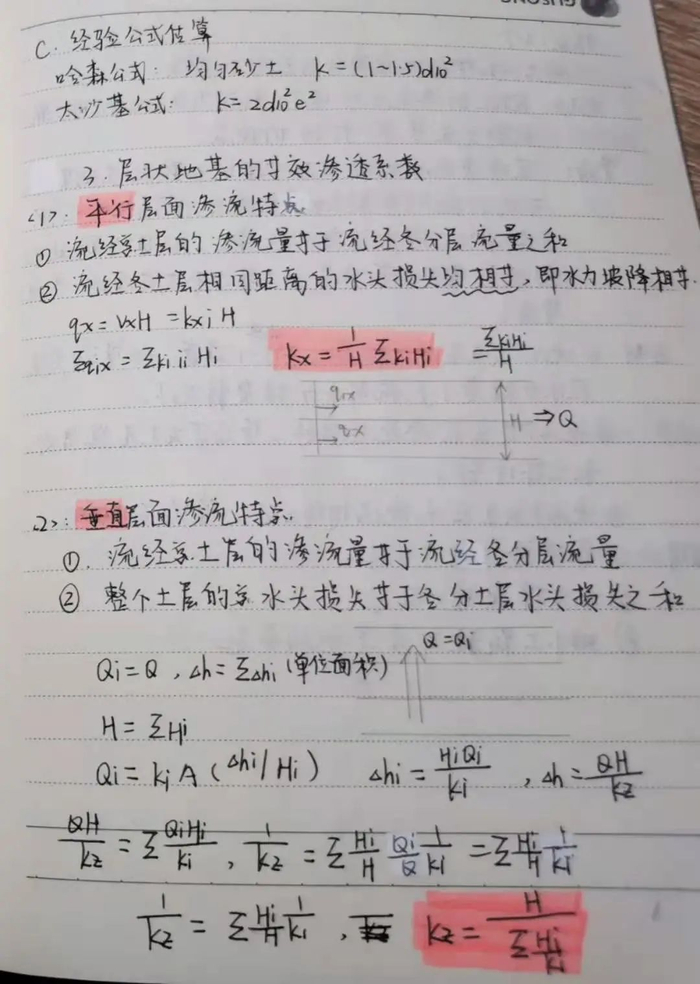 GUSONG
C. 经验公式估算
哈森公式: 均匀砂土 k=(1~1.5)d10²
太沙基公式: k=2d10²e²
3. 层状地基的等效渗透系数
<1>. 平行层面渗流特点
① 流经总土层的渗流量等于流经各分层流量之和
② 流经各土层相同距离的水头损失均相等,即水力坡降相等.
qx = vxH = kxi H
Σqix = Σki ii Hi kx = 1/H ΣkiHi = ΣkiHi/H
q1x
q2x
H ⇒ Q
<2>. 垂直层面渗流特点.
①. 流经总土层的渗流量等于流经各分层流量
② 整个土层的总水头损失等于各分土层水头损失之和
Q=Qi
Qi=Q , Δh=ΣΔhi (单位面积)
H=ΣHi
Qi=kiA(Δhi/Hi) Δhi=HiQi/ki , Δh=QH/kz
QH/kz = ΣQiHi/ki , 1/kz = ΣHi/H Qi/Q 1/ki = ΣHi/H 1/ki
1/kz = ΣHi/H 1/ki , kz = H/ΣHi/ki